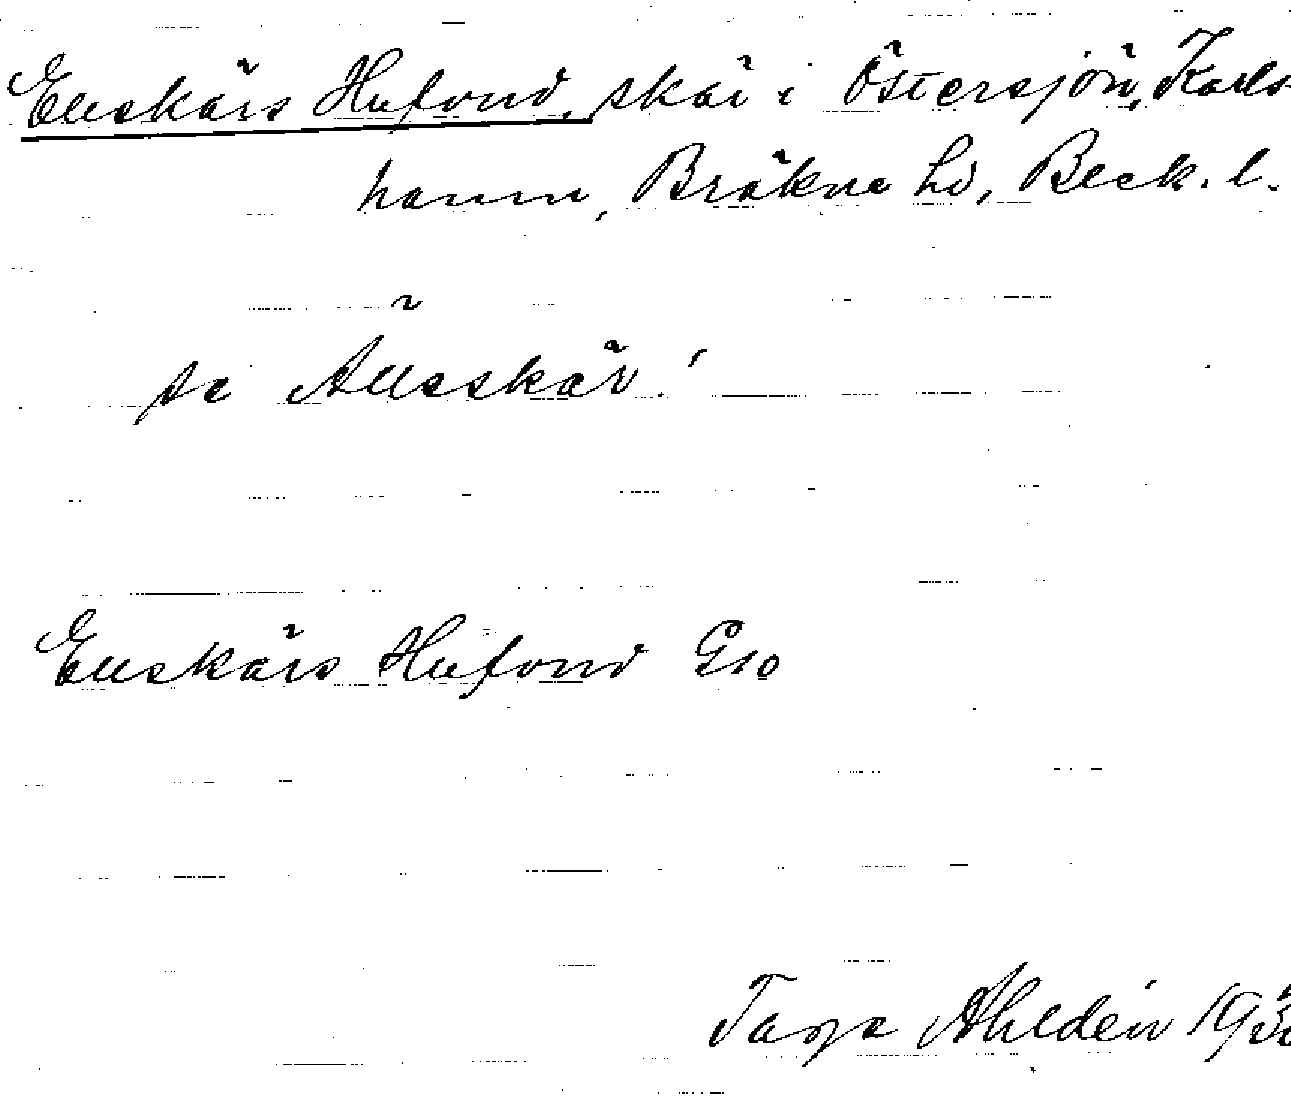 Elleskärs Hufvud, skär i Östersjön, Karls-
hamn, Bräkne hd, Bleck. l.
se Älleskär!
Elleskärs Hufvud G10
Tage Ahldén 193